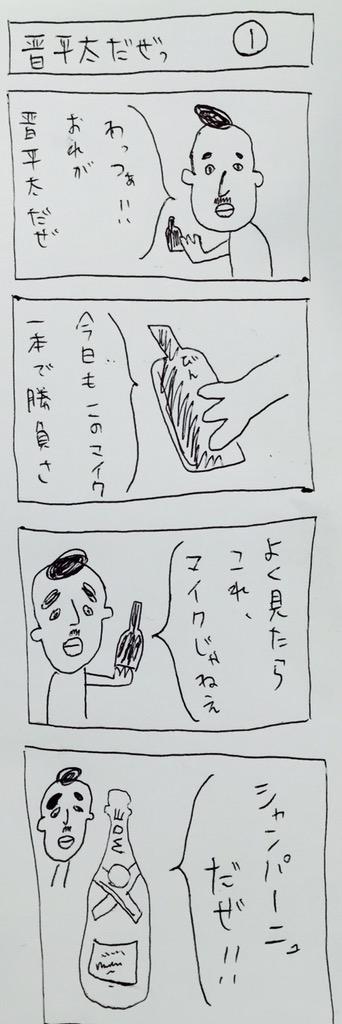 晋平太だぜっ
①
わっつぁ!!
おれが
晋平太だぜ
びん
今日もこのマイク
一本で勝負さ
よく見たら
これ、
マイクじゃねえ
シャンパーニュ
だぜ!!
MOE